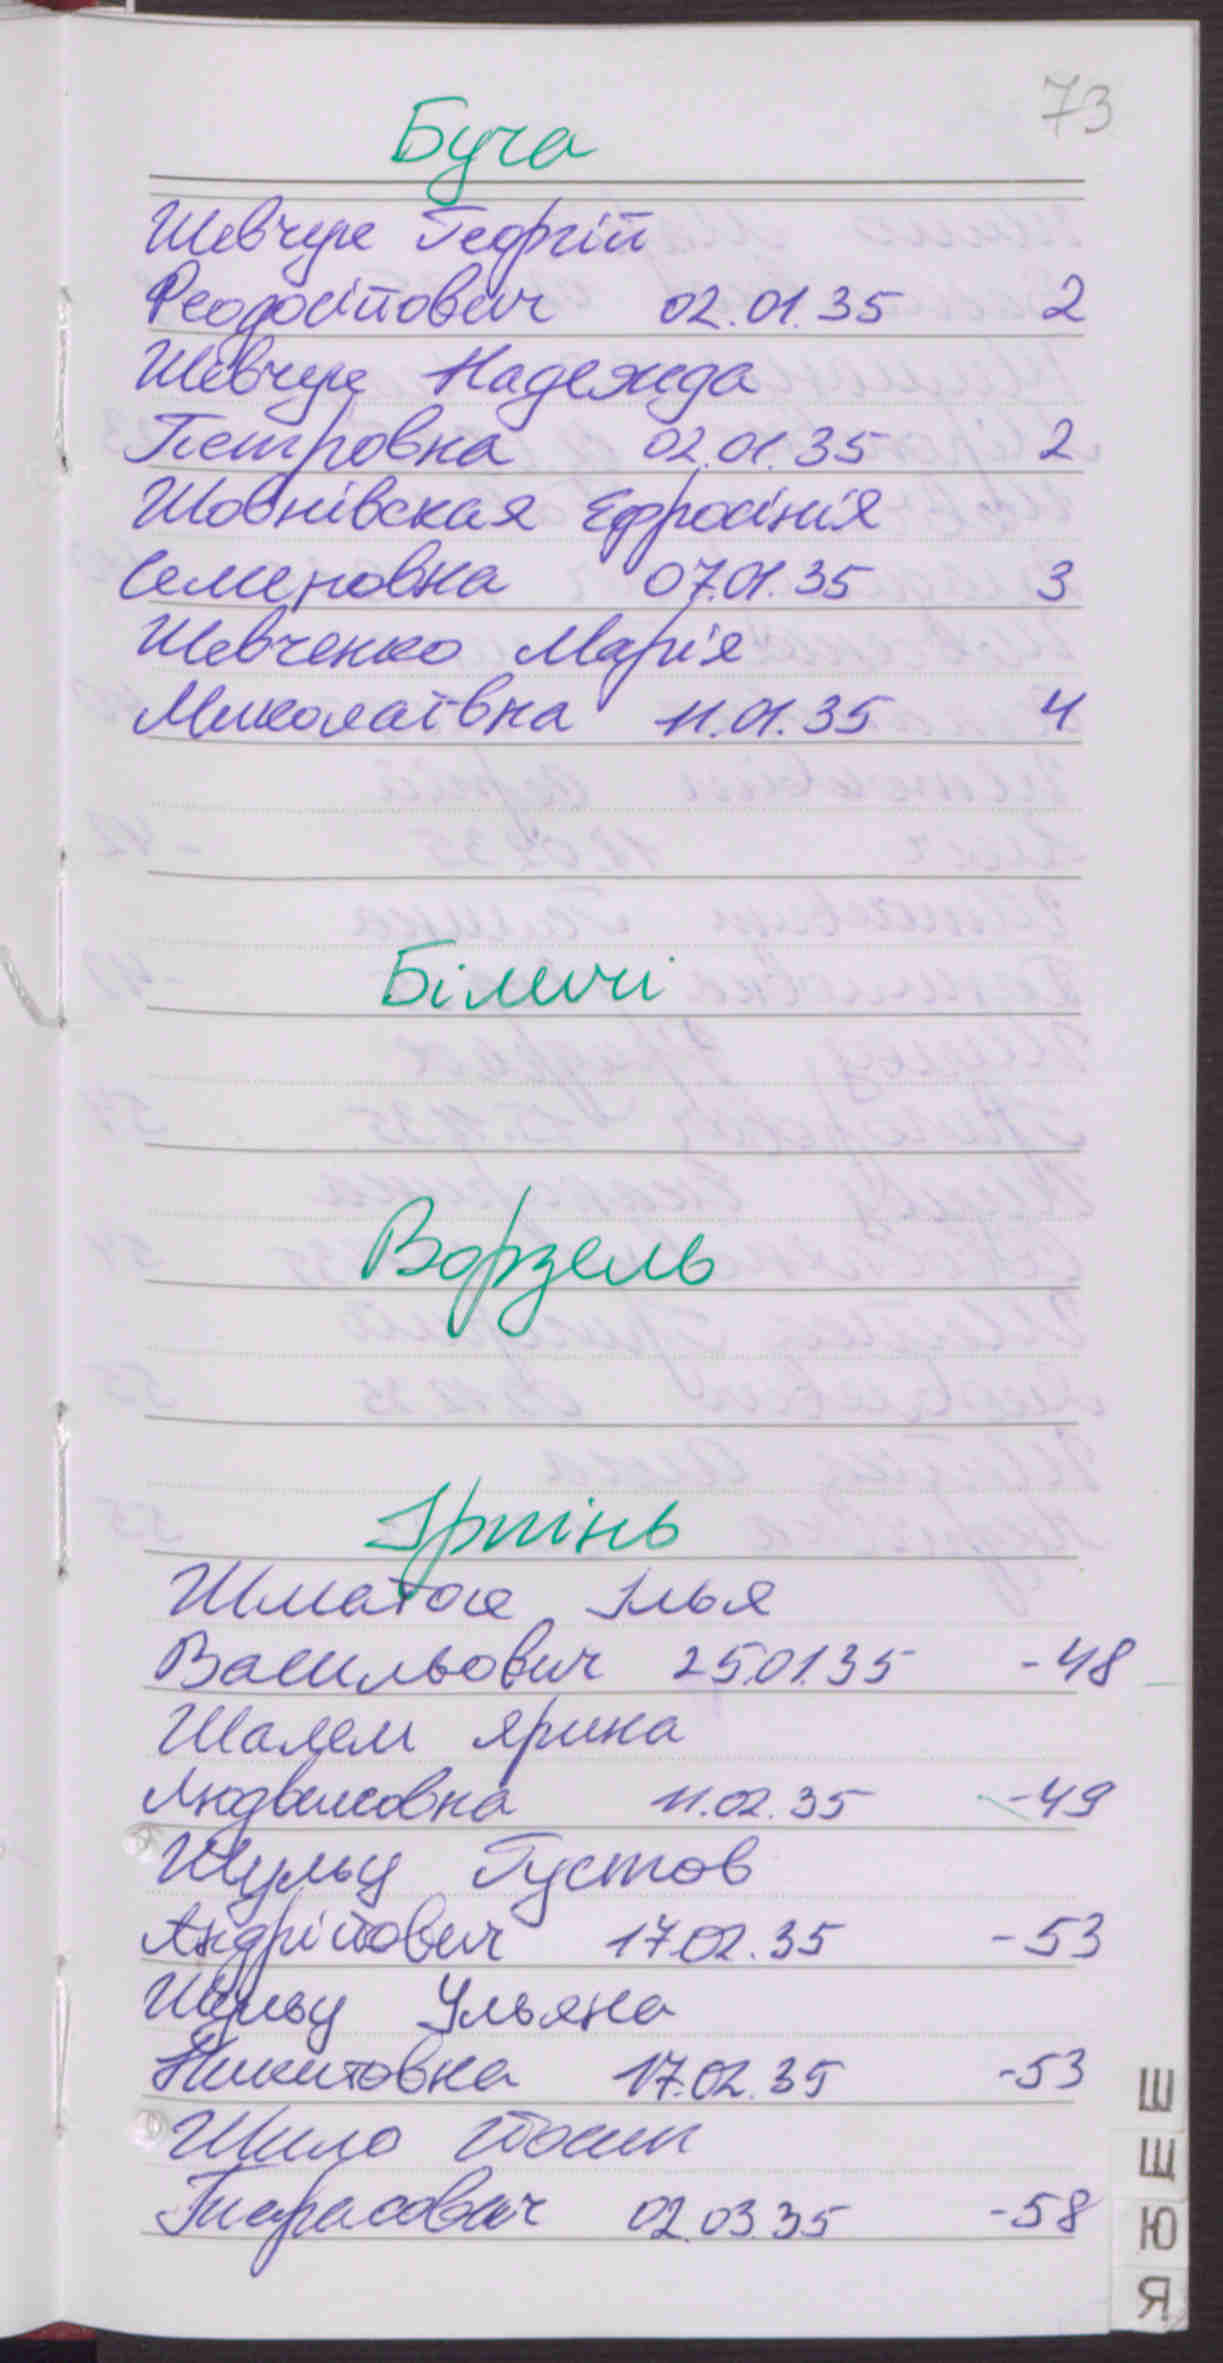 73
Буча
Шевчук Георгій
Феодосійович 02.01.35 2
Шевчук Надежда
Петровна 02.01.35 2
Шовнівская Ефросінія
Семеновна 07.01.35 3
Шевченко Марія
Миколаївна 11.01.35 4
Біличі
Ворзель
Ірпінь
Шматок Ілья
Васильович 25.01.35 -48
Шалем Ярина
Людвиковна 11.02.35 -49
Шульц Густов
Андрійович 17.02.35 -53
Шульц Ульяна
Никитовна 17.02.35 -53
Шило Йосип
Тарасович 02.03.35 -58
Ш
Щ
Ю
Я